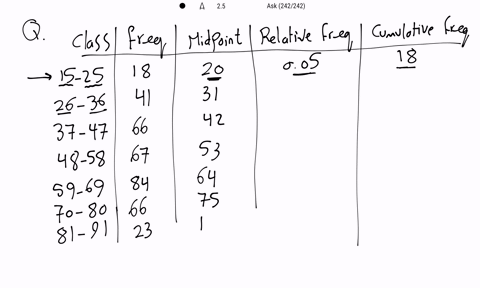 2.5 Ask (242/242)
Q. Class Freq Midpoint Relative Freq Cumulative Freq
→ 15-25 18 20 0.05 18
26-36 41 31
37-47 66 42
48-58 67 53
59-69 84 64
70-80 66 75
81-91 23